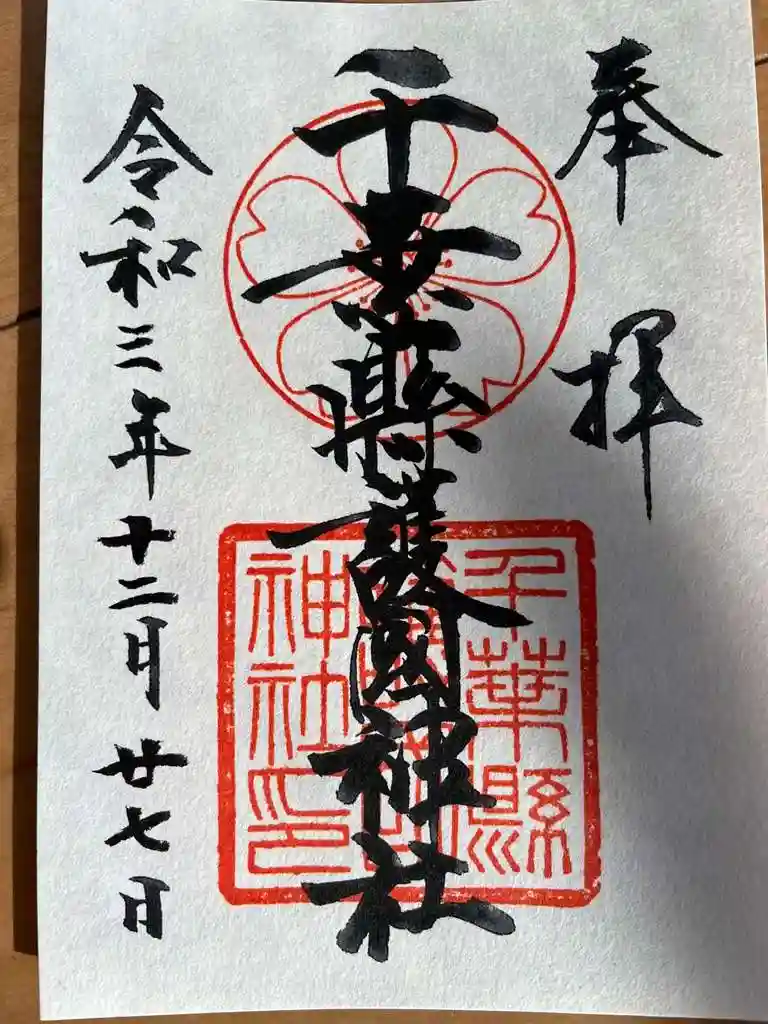 奉拝
千葉縣護國神社
千葉縣
神社印
令和三年十二月廿七日